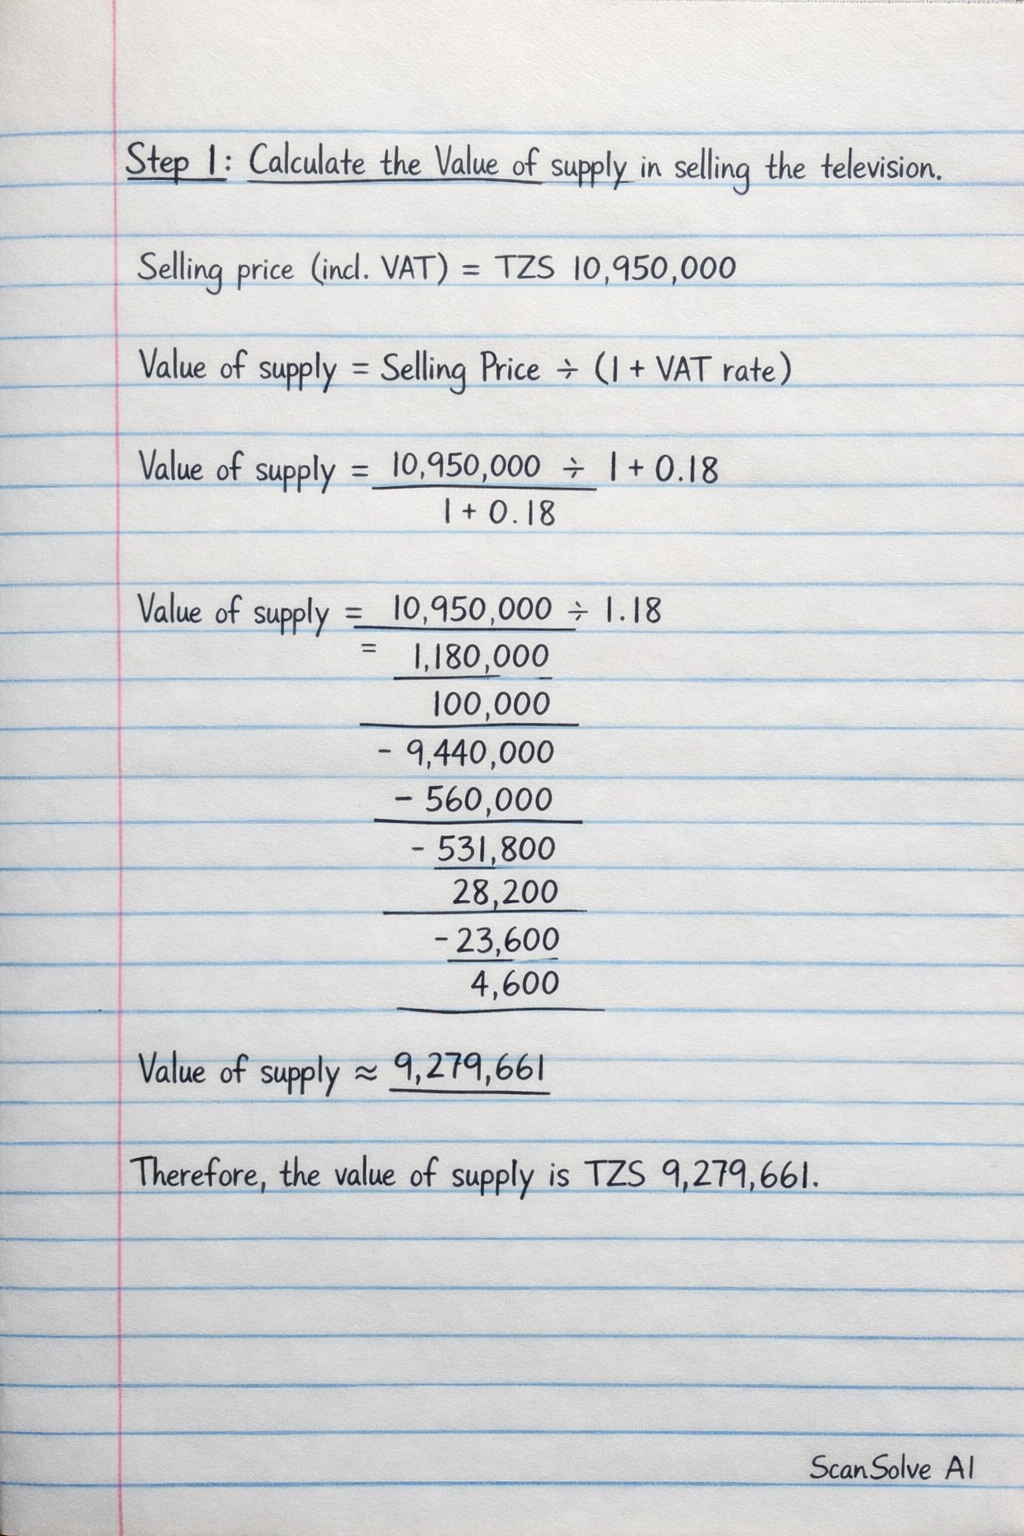 Step 1: Calculate the Value of supply in selling the television.
Selling price (incl. VAT) = TZS 10,950,000
Value of supply = Selling Price ÷ (1 + VAT rate)
Value of supply = 10,950,000 ÷ 1 + 0.18
1 + 0.18
Value of supply = 10,950,000 ÷ 1.18
= 1,180,000
100,000
- 9,440,000
- 560,000
- 531,800
28,200
- 23,600
4,600
Value of supply ≈ 9,279,661
Therefore, the value of supply is TZS 9,279,661.
ScanSolve AI